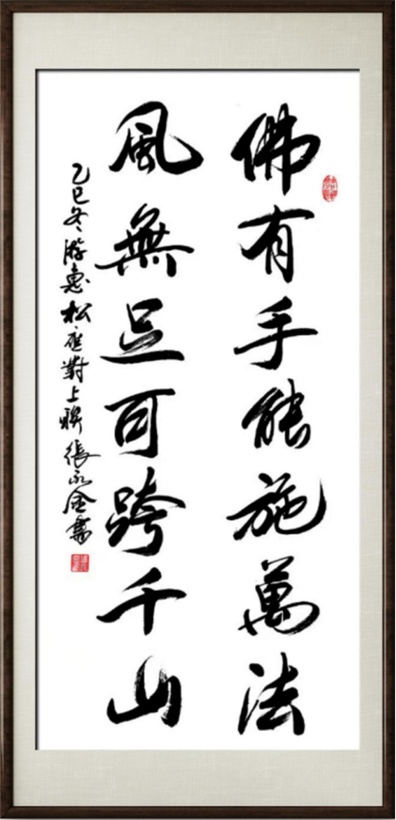 佛有手能施萬法
風無足可跨千山
乙巳冬游惠松应對上联張永金書